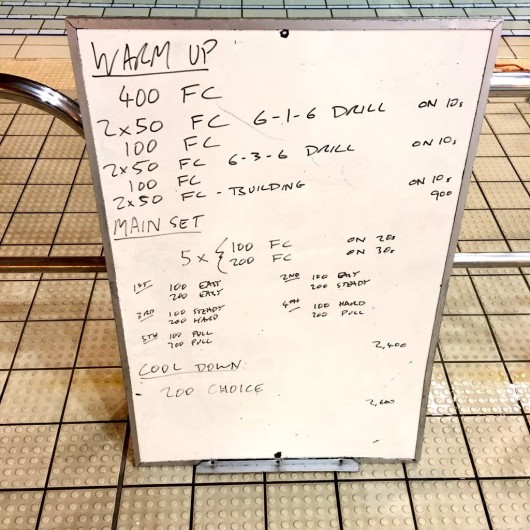 WARM UP
400 FC
2x50 FC 6-1-6 DRILL ON 10s
100 FC
2x50 FC 6-3-6 DRILL ON 10s
100 FC
2x50 FC - BUILDING ON 10s
900
MAIN SET
5 x { 100 FC ON 20s
200 FC ON 30s
1ST 100 EASY
200 EASY
2ND 100 EASY
200 STEADY
3RD 100 STEADY
200 HARD
4TH 100 HARD
200 PULL
5TH 100 PULL
200 PULL
2,400
COOL DOWN:
200 CHOICE
2,600